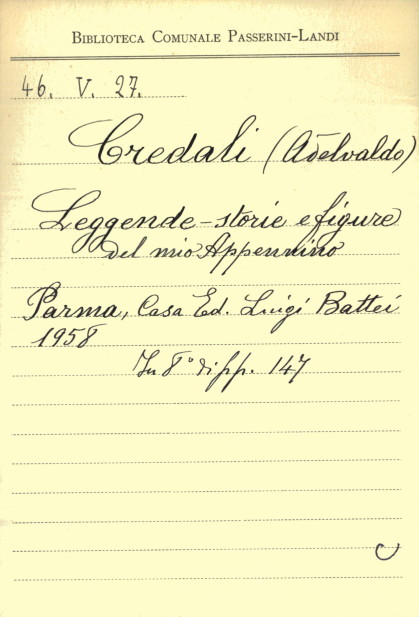 BIBLIOTECA COMUNALE PASSERINI-LANDI
46. V. 27.
Credali (Adelvaldo)
Leggende - storie e figure
del mio Appennino
Parma, Casa Ed. Luigi Battei
1958
In 8° di pp. 147
C